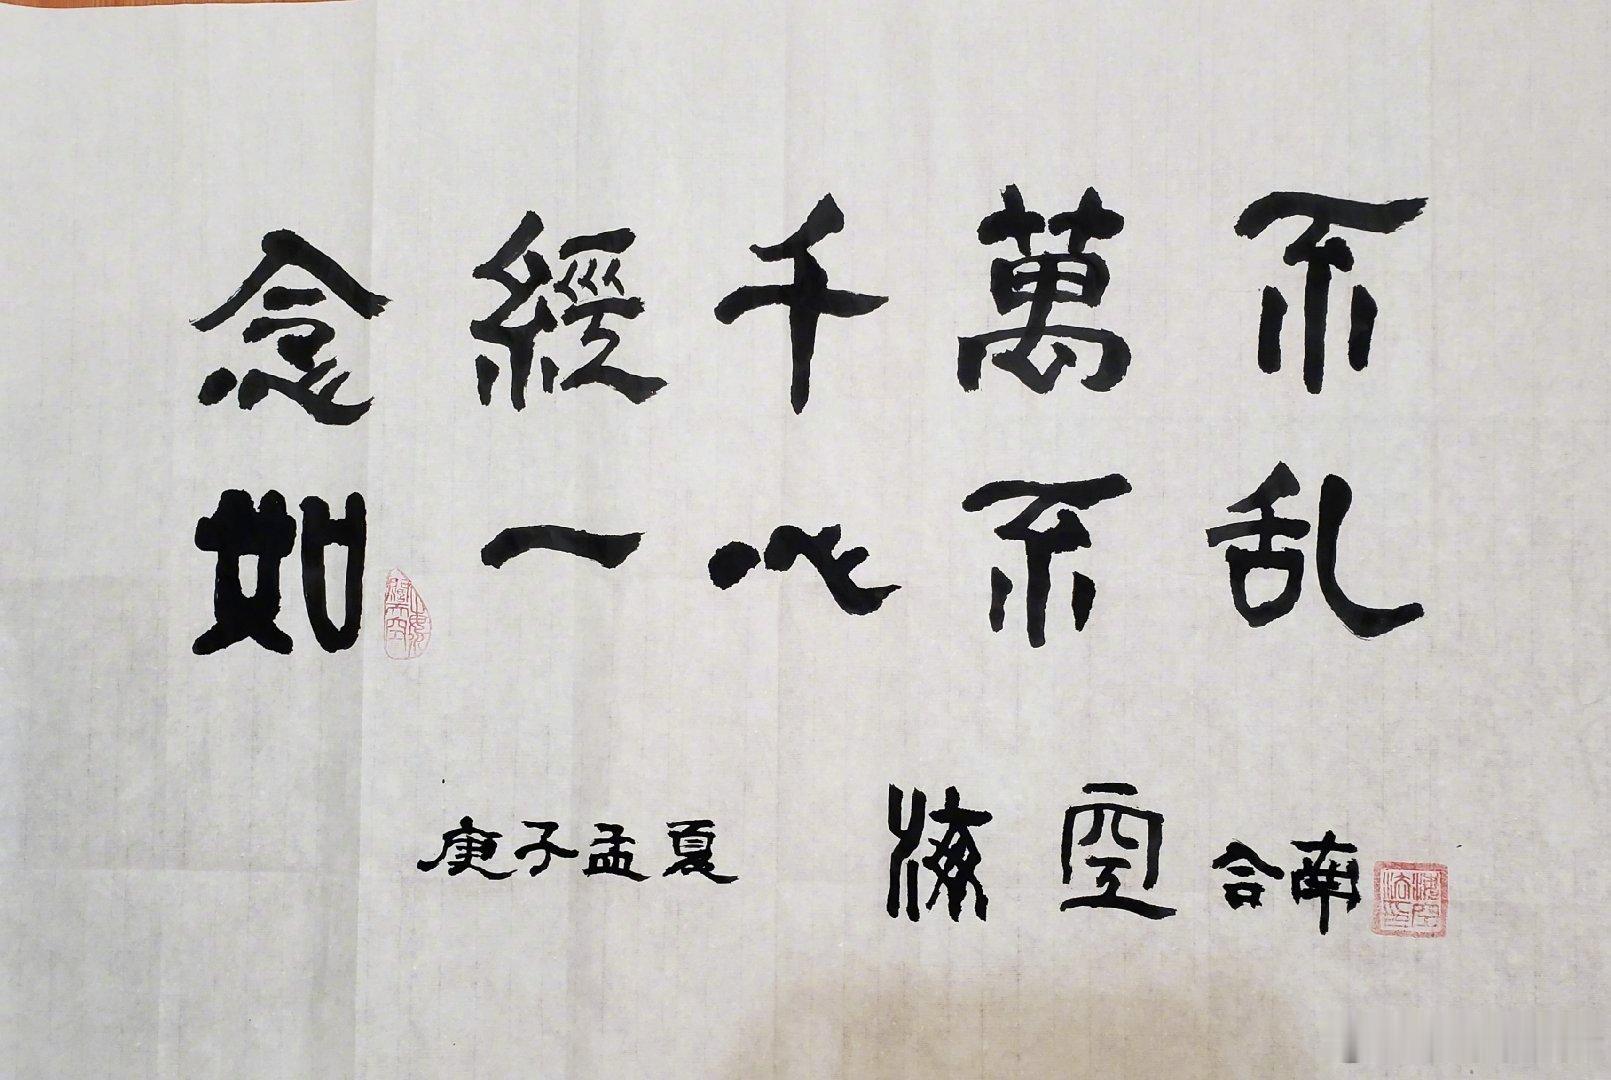 念經千萬不
如一心不乱
庚子孟夏 海空 合南